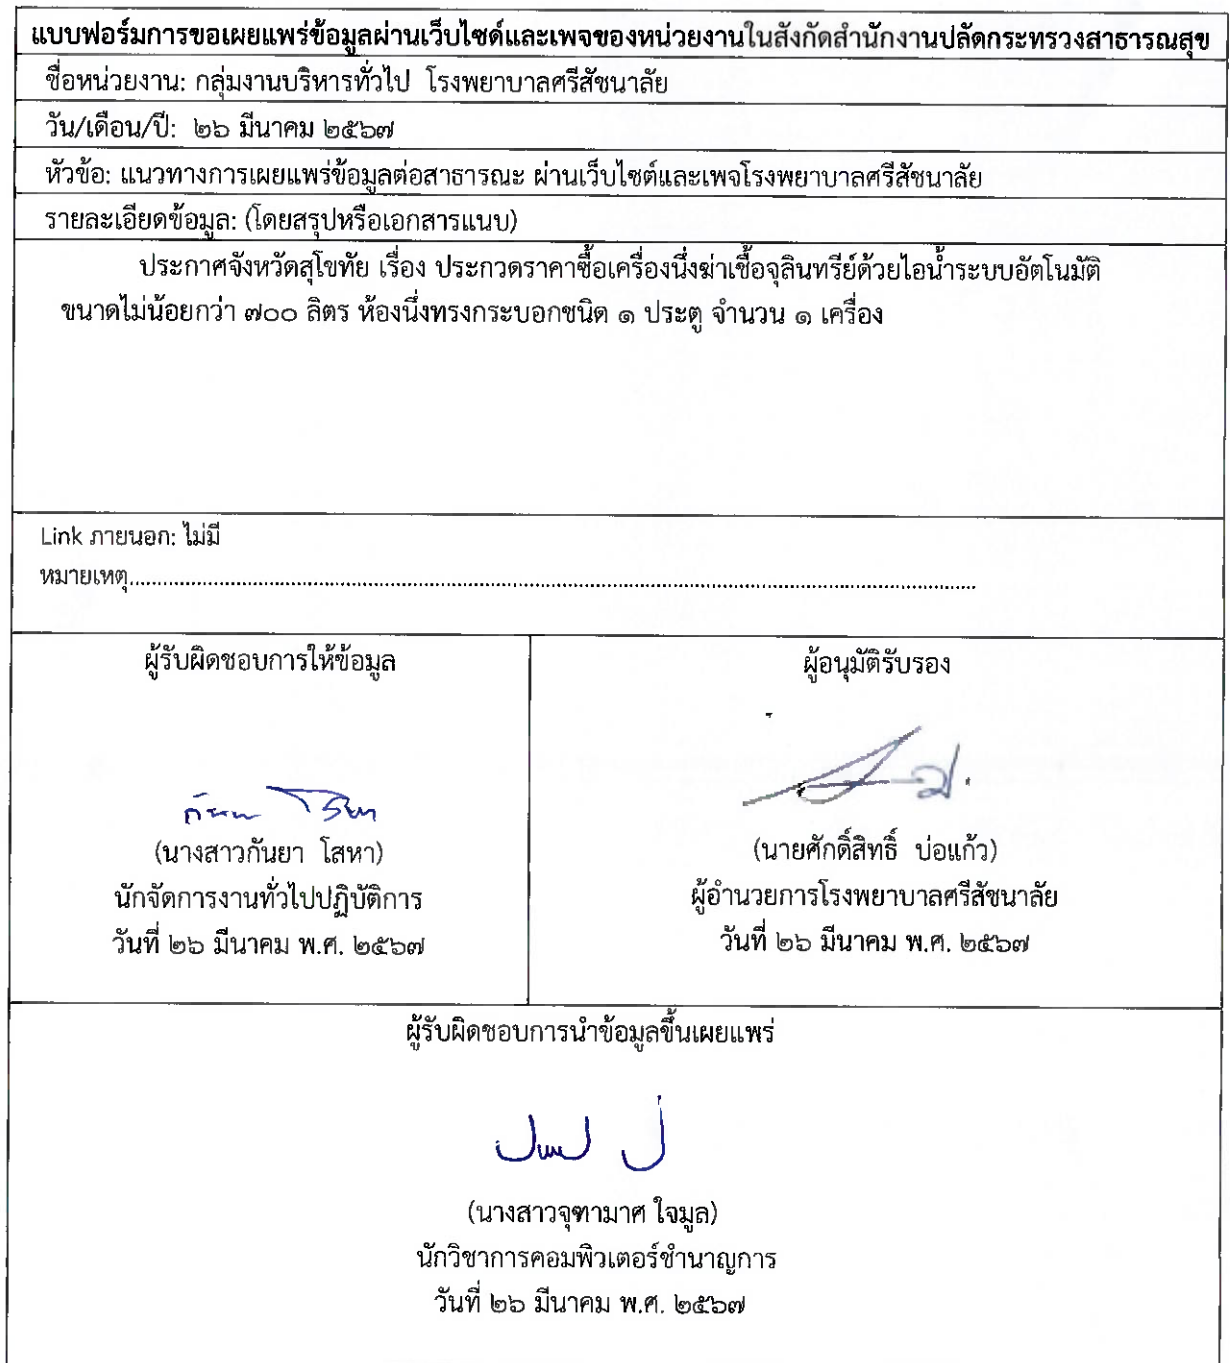 แบบฟอร์มการขอเผยแพร่ข้อมูลผ่านเว็บไซด์และเพจของหน่วยงานในสังกัดสำนักงานปลัดกระทรวงสาธารณสุข
ชื่อหน่วยงาน: กลุ่มงานบริหารทั่วไป โรงพยาบาลศรีสัชนาลัย
วัน/เดือน/ปี: ๒๖ มีนาคม ๒๕๖๗
หัวข้อ: แนวทางการเผยแพร่ข้อมูลต่อสาธารณะ ผ่านเว็บไซต์และเพจโรงพยาบาลศรีสัชนาลัย
รายละเอียดข้อมูล: (โดยสรุปหรือเอกสารแนบ)
ประกาศจังหวัดสุโขทัย เรื่อง ประกวดราคาซื้อเครื่องนึ่งฆ่าเชื้อจุลินทรีย์ด้วยไอน้ำระบบอัตโนมัติ
ขนาดไม่น้อยกว่า ๗๐๐ ลิตร ห้องนึ่งทรงกระบอกชนิด ๑ ประตู จำนวน ๑ เครื่อง
Link ภายนอก: ไม่มี
หมายเหตุ........................................................................................................................
ผู้รับผิดชอบการให้ข้อมูล
(นางสาวกันยา โสหา)
นักจัดการงานทั่วไปปฏิบัติการ
วันที่ ๒๖ มีนาคม พ.ศ. ๒๕๖๗
ผู้อนุมัติรับรอง
(นายศักดิ์สิทธิ์ บ่อแก้ว)
ผู้อำนวยการโรงพยาบาลศรีสัชนาลัย
วันที่ ๒๖ มีนาคม พ.ศ. ๒๕๖๗
ผู้รับผิดชอบการนำข้อมูลขึ้นเผยแพร่
(นางสาวจุฑามาศ ใจมูล)
นักวิชาการคอมพิวเตอร์ชำนาญการ
วันที่ ๒๖ มีนาคม พ.ศ. ๒๕๖๗